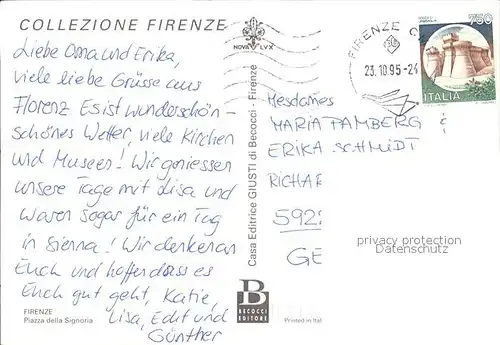 COLLEZIONE FIRENZE
Liebe Oma und Erika,
viele liebe Grüsse aus
Florenz Es ist wunderschön -
schönes Wetter, viele Kirchen
und Museen! Wir geniessen
unsere Tage mit Lisa und
waren sogar für ein Tag
in Sienna! Wir denken an
Euch und hoffen dass es
Euch gut geht, Katie,
Lisa, Edit und
Günther
FIRENZE
Piazza della Signoria
NOVA LVX
Casa Editrice GIUSTI di Becocci - Firenze
B
BECOCCI
EDITORE
Printed in Ital
FIRENZE C
23.10.95-24
750
ITALIA
Mesdames
MARIA PAMBERG &
ERIKA SCHMIDT
RICHAR
592
GE
privacy protection
Datenschutz